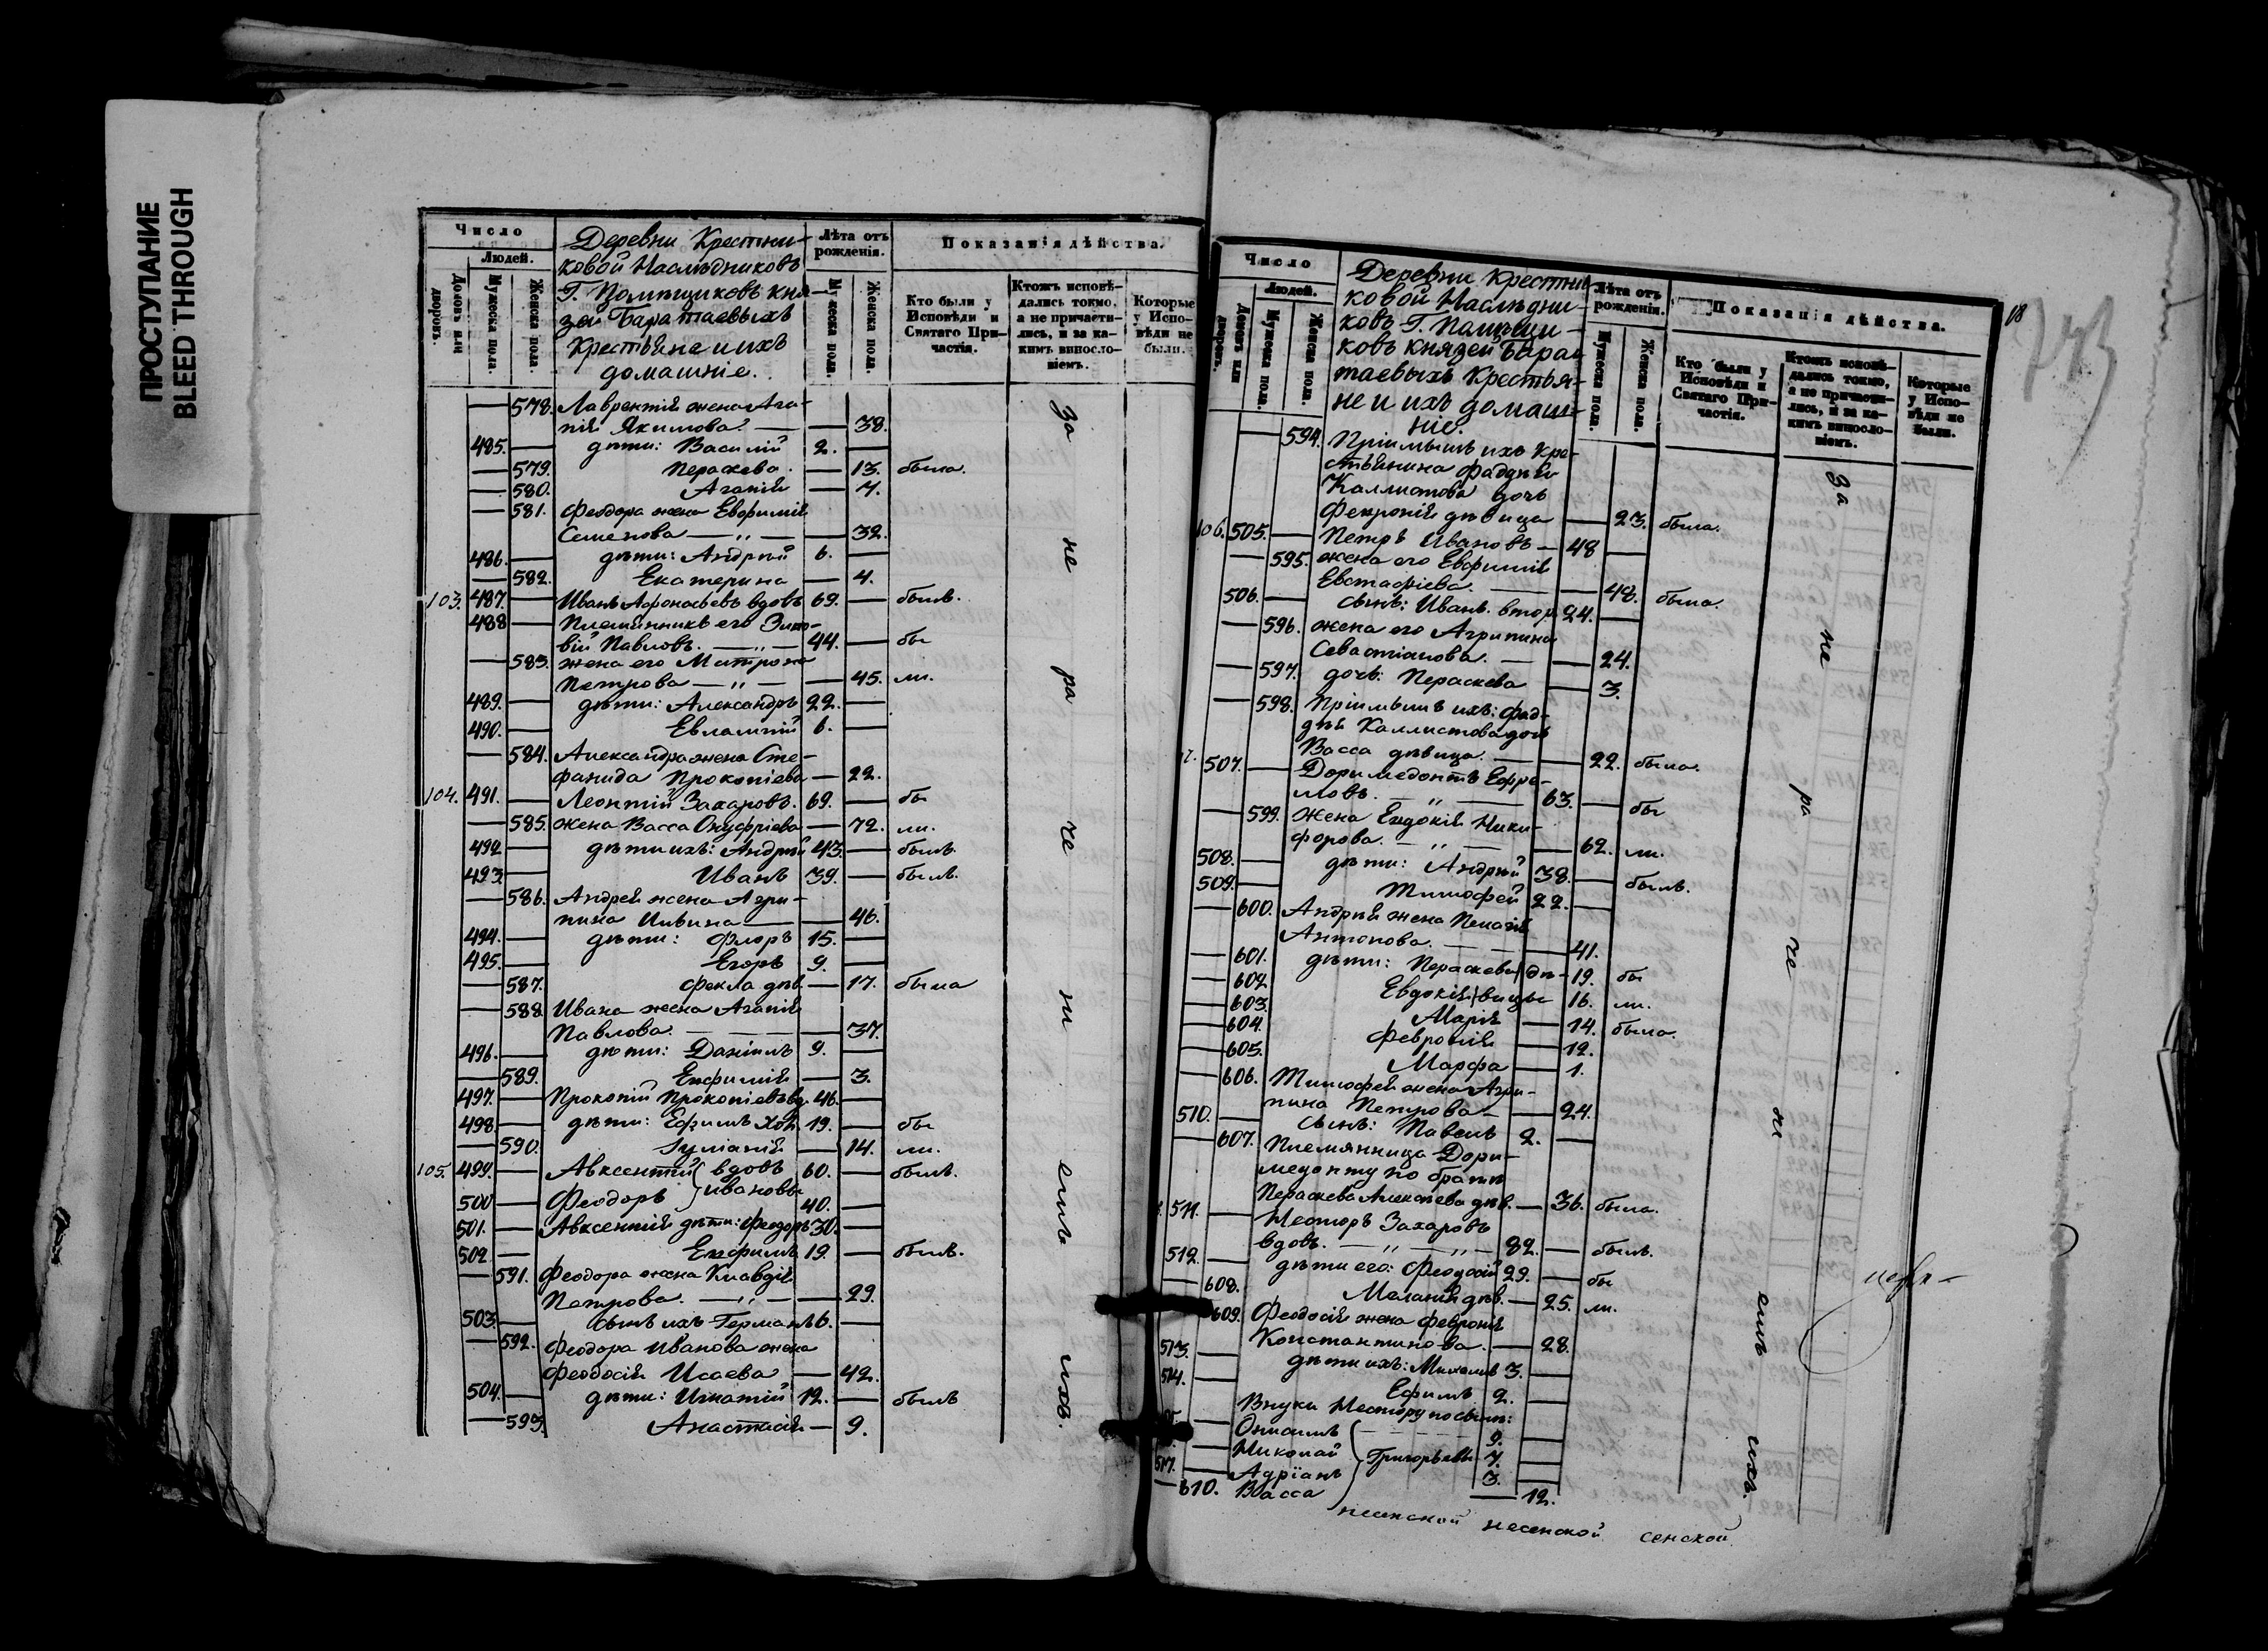 ПРОСТУПАНИЕ
BLEED THROUGH
Число
Людей.
Домовъ или дворовъ.
Мужеска пола.
Женска пола.
Деревни Крестни-
ковой Наслѣдниковъ
Г. Помѣщиковъ кня-
зей Баратаевыхъ
Крестьяне и ихъ
домашніе.
Лѣта отъ рожденія.
Мужеска пола.
Женска пола.
Показанія дѣйства.
Кто были у Исповѣди и Святаго При-частія.
Ктожъ исповѣ-дались токмо, а не причасти-лись, и за ка-кимъ виносло-віемъ.
Которые у Испо-вѣди не были.
578. Лаврентія жена Ага-
пія Якимова. — 38.
485. дѣти: Василій 2.
579. Параскева. — 13. была.
580. Агапія — 7.
581. Феодора жена Евфимія
Семенова — „ — 32.
486. дѣти: Андрѣй 6.
582. Екатерина — 4.
103. 487. Иванъ Афонасьевъ вдовъ 69. — былъ.
488 Племянникъ его Зино-
вій Павловъ. — „ — 44. — бы
583. жена его Матрона
Петрова — „ — 45. ли.
489. дѣти: Александръ 22.
490. Евлампій 6.
584. Александра жена Сте-
фанида Прокопіева — 22.
104. 491. Леонтій Захаровъ. 69. — бы
585. жена Васса Онуфріева — 72. ли.
492 дѣти ихъ: Андрѣй 43. — былъ
493. Иванъ 39. — былъ.
586. Андрея жена Агри-
пина Ильина — 46.
494. дѣти: Флоръ 15.
495. Егоръ 9.
587. Фекла дѣв. — 17. была
588. Ивана жена Агапія
Павлова. — 37.
496. дѣти: Даніилъ 9.
589. Евфимія — 3.
497. Прокопій Прокопіевъ вд. 46.
498 дѣти: Ефимъ хол. 19. — бы
590. Іуліанія — 14. ли.
105. 499. Авксентій вдовъ 60. — былъ.
500 Феодоръ Ивановы 40.
501. Авксентія дѣти: Феодоръ 30.
502. Евфимъ 19. — былъ.
591. Феодора жена Клавдія
Петрова. — „ — 29.
503. сынъ ихъ Германъ 6.
592. Феодора Иванова жена
Феодосія Исаева — 42.
504. дѣти: Игнатій 12. — былъ
593. Анастасія — 9.
За не ра че ні емъ ихъ.
18
Число
Людей.
Домовъ или дворовъ.
Мужеска пола.
Женска пола.
Деревни Крестни-
ковой Наслѣдни-
ковъ Г. Помѣщи-
ковъ князей Бара-
таевыхъ Крестья-
не и ихъ домаш-
ніе.
Лѣта отъ рожденія.
Мужеска пола.
Женска пола.
Показанія дѣйства.
Кто были у Исповѣди и Святаго При-частія.
Ктожъ исповѣ-дались токмо, а не причасти-лись, и за ка-кимъ виносло-віемъ.
Которые у Испо-вѣди не были.
594. Пріимышъ ихъ кре-
стьянина Фаддѣя
Каллистова дочь
Февронія дѣвица — 23. была.
106. 505. Петръ Ивановъ — 48
595. жена его Евфимія
Евстафіева. — 48. была.
506. сынъ: Иванъ втор. 24.
596. жена его Агрипина
Севастіанова. — 24.
597. дочь: Параскева — 3.
598. Пріимышъ ихъ: Фад-
дѣя Каллистова дочь
Васса дѣвица. — 22. была.
507. Доримедонтъ Ефре-
мовъ. — „ — 63. — бы
599. жена Евдокія Ники-
форова. — „ — 62. ли.
508. дѣти: Андрѣй 38. — былъ.
509. Тимофей 22.
600. Андрѣя жена Пелагія
Антонова. — 41.
601. дѣти: Параскева дѣ- 19. бы
602 Евдокія вицы 16. ли.
603. Марія — 14. была.
604. Февронія — 12.
605. Марфа — 1.
606. Тимофея жена Агри-
пина Петрова — 24.
510. сынъ: Павелъ 2.
607. Племянница Дори-
медонту по братѣ
Параскева Алексѣева дѣв. — 36. была.
511. Несторъ Захаровъ
вдовъ. — „ — „ — 82. — былъ.
512. дѣти его: Феодосій 29. — бы
608. Маланія дѣв. — 25. ли.
609. Феодосія жена Февронія
Константинова. — 28.
513. дѣти ихъ: Михаилъ 3.
514. Ефимъ 2.
Внуки Нестору по сынѣ:
Онисимъ 9.
Николай Григорьевы 7.
517. Адріанъ 3.
610. Васса — 12.
За не ра че ні емъ ихъ.